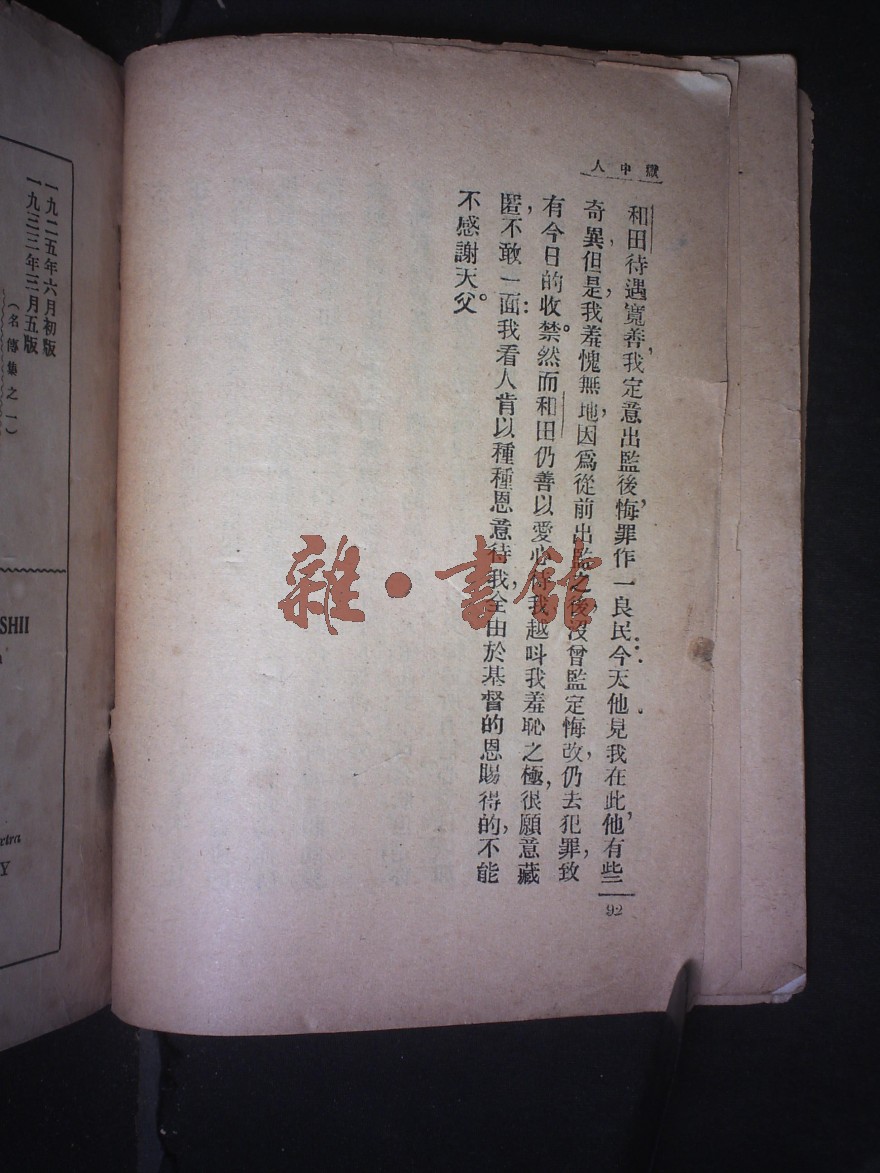 獄中人
和田待遇寬善，我定意出監後，悔罪作一良民今天他見我在此，他有些
奇異，但是，我羞愧無地，因爲從前出監之後，沒曾監定悔改，仍去犯罪，致
有今日的收禁。然而和田仍善以愛心待我越叫我羞恥之極，很願意藏
匿，不敢一面：我看人肯以種種恩意待我，全由於基督的恩賜得的，不能
不感謝天父。
92
一九二五年六月初版
一九三三年三月五版
（名傳集之一）
SHII
extra
Y
雜·書館